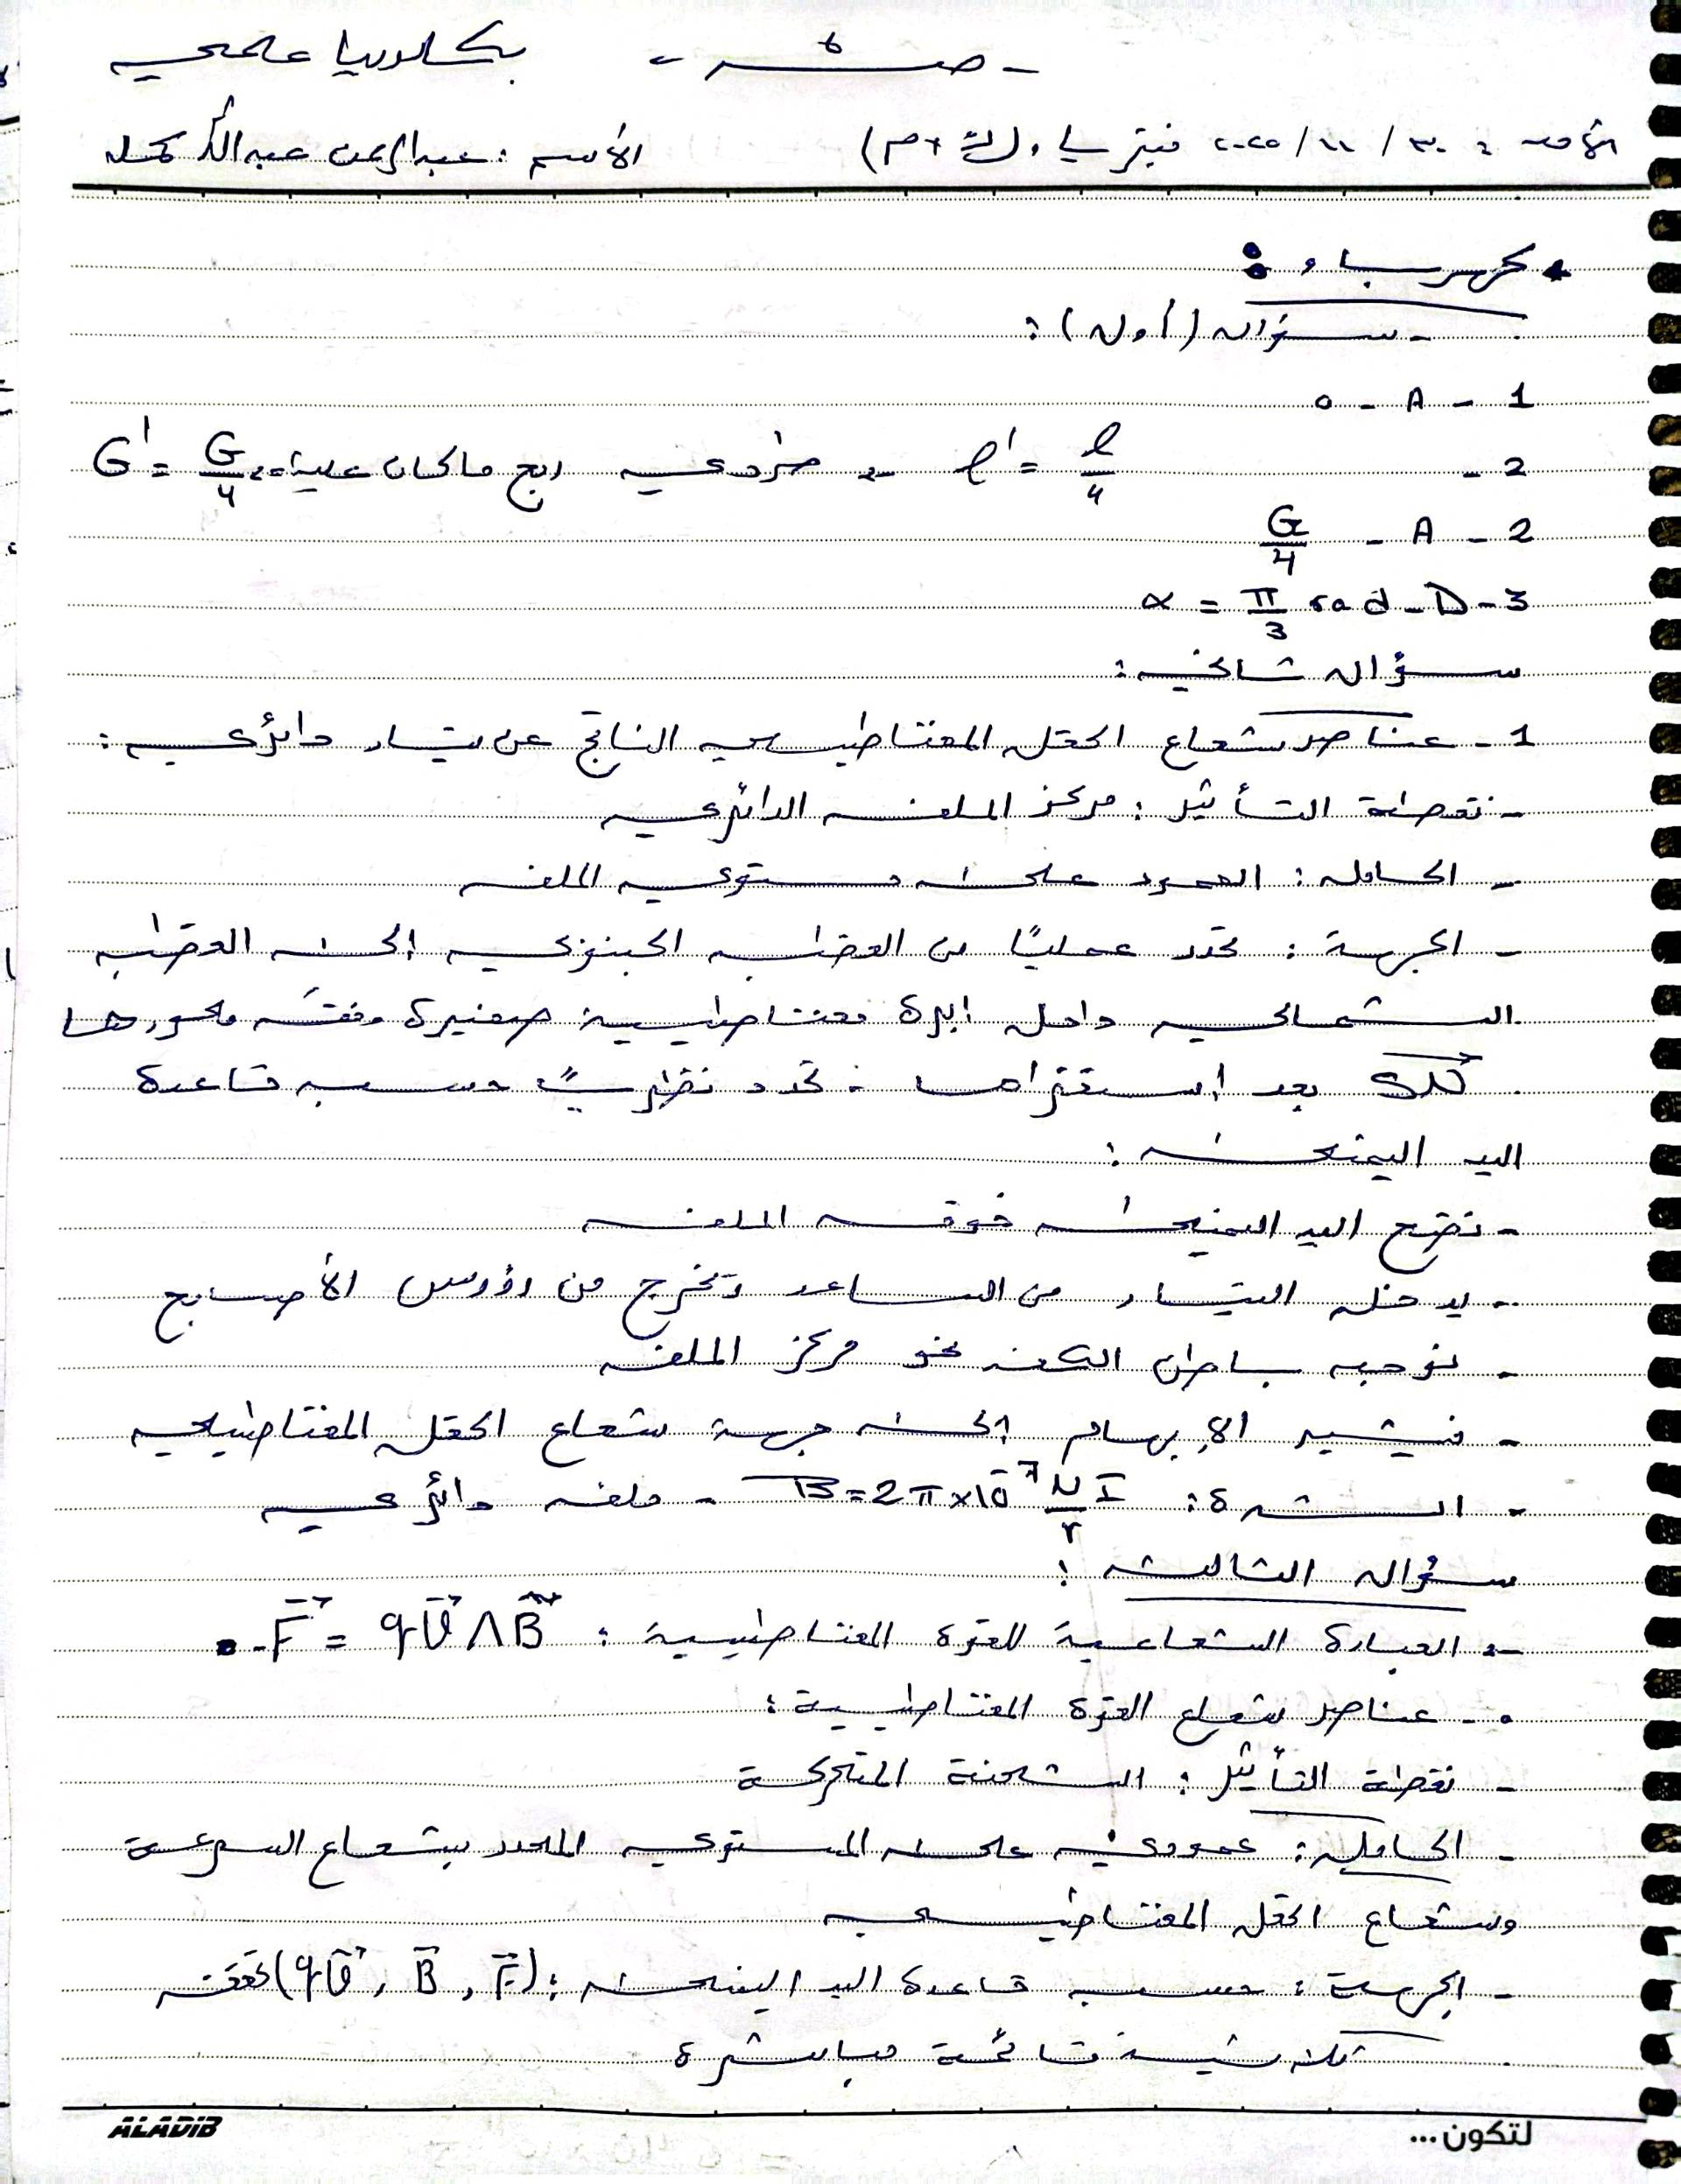 بكالوريا علمي
الأحد: ٣٠/١١/٢٠٢٥ فيزياء
الاسم: عبد الرحمن عبد الله
• كهرباء:
- سؤال (أول):
1 - A - 0
2 - ℓ' = ℓ/4 طردي ربع ما كان عليه G' = G/4
2 - A - G/4
3 - D - α = π/3 rad
سؤال ثاني:
1 - عناصر شعاع الحقل المغناطيسي الناتج عن تيار دائري:
- نقطة التأثير: مركز الملف الدائري
- الحامل: العمود على مستوي الملف
- الجهة: تحدد عمليًا من القطب الجنوبي إلى القطب
الشمالي داخل ابرة مغناطيسية صغيرة وفق محورها
بعد استقرارها. تحدد نظريًا حسب قاعدة
اليد اليمنى:
- نضع اليد اليمنى فوق الملف
- يدخل التيار من الساعد وتخرج من رؤوس الأصابع
- نوجه باطن الكف نحو مركز الملف
- فيشير الإبهام إلى جهة شعاع الحقل المغناطيسي
- الشدة: B = 2π×10⁻⁷ NI/r - ملف دائري
سؤال الثالث:
- العبارة الشعاعية للقوة المغناطيسية: F⃗ = qv⃗ ∧ B⃗
- عناصر شعاع القوة المغناطيسية:
- نقطة التأثير: الشحنة المتحركة
- الحامل: عمودي على المستوي المحدد بشعاع السرعة
وشعاع الحقل المغناطيسي
- الجهة: حسب قاعدة اليد اليمنى: (qv⃗, B⃗, F⃗) تحقق
ثلاثية قائمة مباشرة
ALADIB
لتكون...